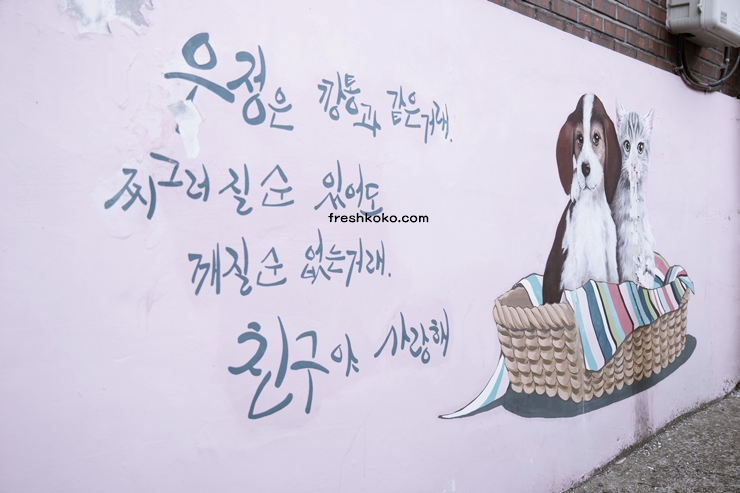 우정은 깡통과 같은거래.
찌그러질순 있어도
freshkoko.com
깨질순 없는거래.
친구야 사랑해